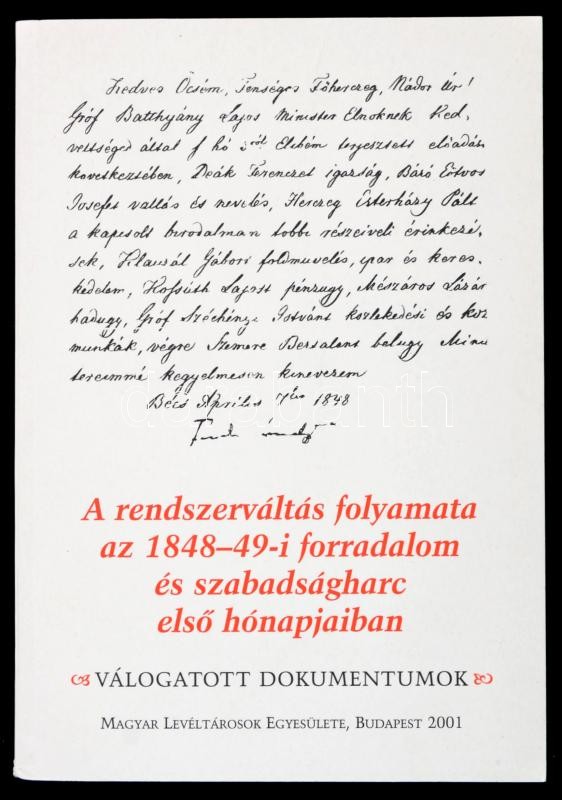 Kedves Öcsém, Fenséges Főherczeg, Nádor Úr!
Gróf Batthyány Lajos Minister Elnöknek Ked-
vettséged által f hó 3ról Elibém terjesztett előadás
következtében, Deák Ferenczet igazság, Báró Eötvös
Josefet vallás és nevelés, Herczeg Esterházy Pált
a kapcsolt birodalman többi részeiveli érinkezé,
sek, Klauzál Gábort foldmuvelés, ipar és keres,
kédelem, Kossúth Lajost pénzugy, Mészáros Lázár
hadugy, Gróf Széchényi Istvánt kozlekedési és koz
munkák, végre Szemere Bertalant belugy Minis
tereimmé kegyelmesen kinevezem
Bécs Április 7én 1848
A rendszerváltás folyamata
az 1848–49-i forradalom
és szabadságharc
első hónapjaiban
VÁLOGATOTT DOKUMENTUMOK
MAGYAR LEVÉLTÁROSOK EGYESÜLETE, BUDAPEST 2001